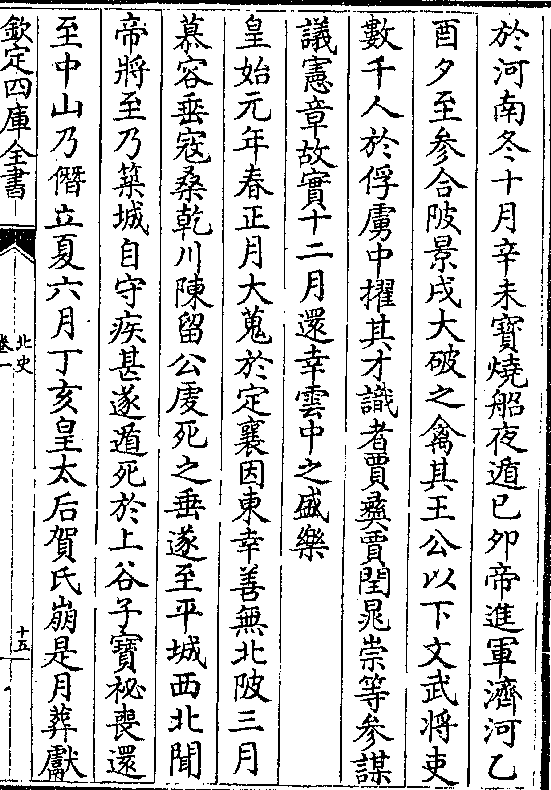 於河南冬十月辛未寶燒船夜遁己夘帝進軍濟河乙
酉夕至參合陂景戌大破之禽其王公以下文武將吏
數千人於俘虜中擢其才識者賈彝賈閏晁崇等參謀
議憲章故實十二月還幸雲中之盛樂
皇始元年春正月大蒐於定襄因東幸善無北陂三月
慕容垂寇桑乾川陳留公䖍死之垂遂至平城西北聞
帝將至乃築城自守疾甚遂遁死於上谷子寶袐喪還
至中山乃僭立夏六月丁亥皇太后賀氏崩是月葬獻
欽定四庫全書
北史
卷一
十五